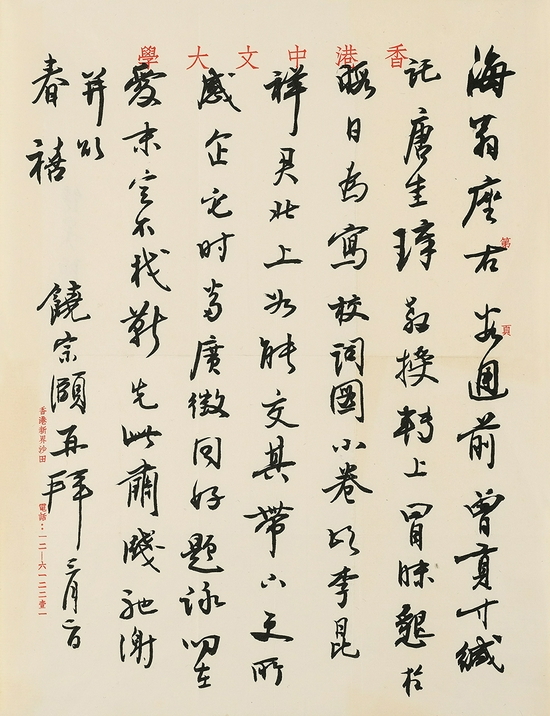 香港中文大學
第 頁
海翁座右 數週前曾貢寸緘
託唐圭璋教授轉上冒昧懇於
暇日為寫校詞圖小卷以李昆
祥君北上如能交其帶下更所
感企它時當廣徵同好題詠叨在
愛末定不我靳先此肅箋馳謝
并頌
春禧
饒宗頤再拜 三月
香港新界沙田 電話：一二—六一二二壹一